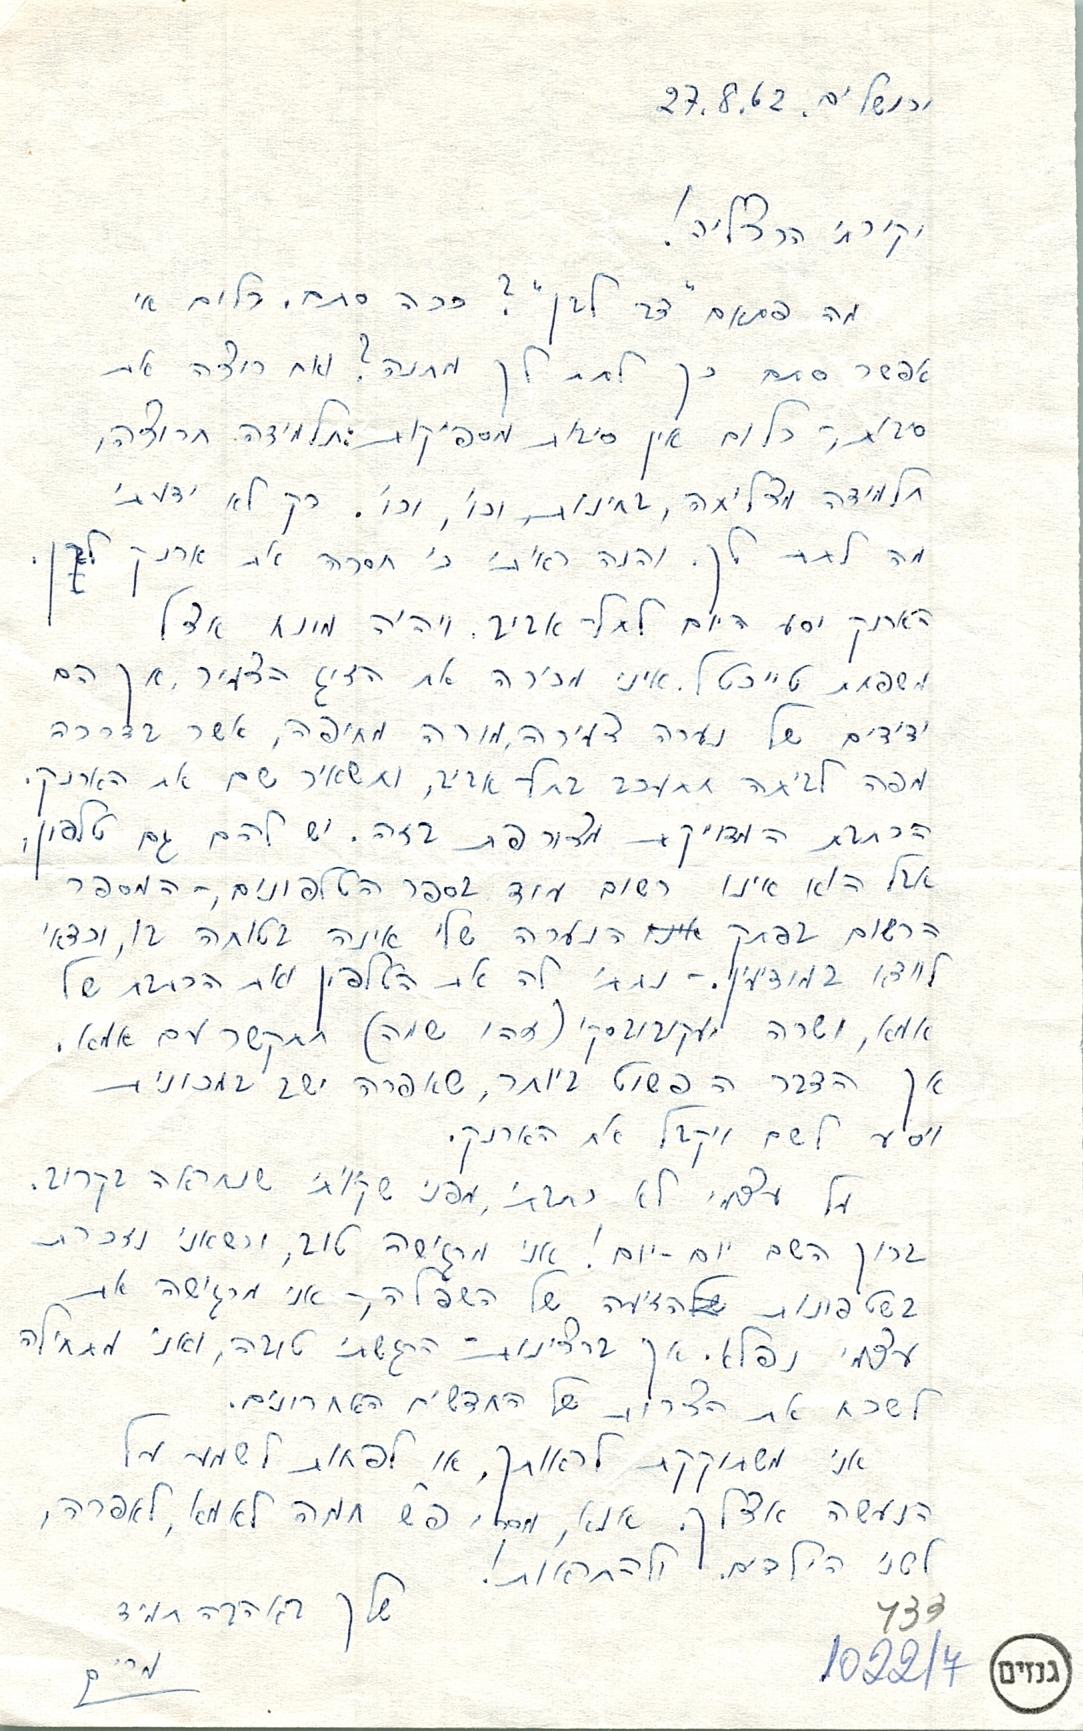 ירושלים. 27.8.62
יקירתי הרצליה!
מה פתאום "צבי לבן"? ככה סתם. כלום אי
אפשר סתם כך לתת לך מתנה? ואת רוצה את
סיבות, - כלום אין סיבות מספיקות: תלמידה חרוצה,
תלמידה מצליחה, בחינות, וכו', וכו'. רק לא ידעתי
מה לתת לך. והנה ראיתי כי חסרה את ארנק לבן.
הארנק יסע היום לתל-אביב. ויהיה מונח אצל
משפחת טייכטל. איני מכירה את הזוג הצעיר, אך הם
ידידים של נערה צעירה, מורה מחיפה, אשר בדרכה
מפה לביתה תתעכב בתל-אביב, ותשאיר שם את הארנק.
הכתבת המדויקת מצורפת בזה. יש להם גם טלפון,
אבל הוא אינו רשום עוד בספר הטלפונים, - המספר
הרשום בפתק הנערה שלי אינה בטוחה בו, וכדאי
לוודא במודיעין. - נתתי לה את הטלפון ואת הכתבת של
אמא, ושרה יעקובובסקי (זהו שמה) תתקשר עם אמא.
אך הדבר הפשוט ביותר, שאפרה ישב במכונית
ויסע לשם ויקבל את הארנק.
על עצמי לא כתבתי, מפני שקויתי שנתראה בקרוב.
ברוך השם יום-יום! אני מרגישה טוב, וכשאני נזכרת
בשטפונות הזיעה של השפלה, - אני מרגישה את
עצמי נפלא. אך ברצינות - הרגשתי טובה, ואני מתחילה
לשכח את הצרות של החדשים האחרונים.
אני משתוקקת לראותך, או לפחות לשמע על
הנעשה אצלך. אנא, מסרי פ"ש חמה לאמא, לאפרה,
לשני הילדים. ולהתראות!
שלך באהבה תמיד
מרים
733
1022/7
גנזים